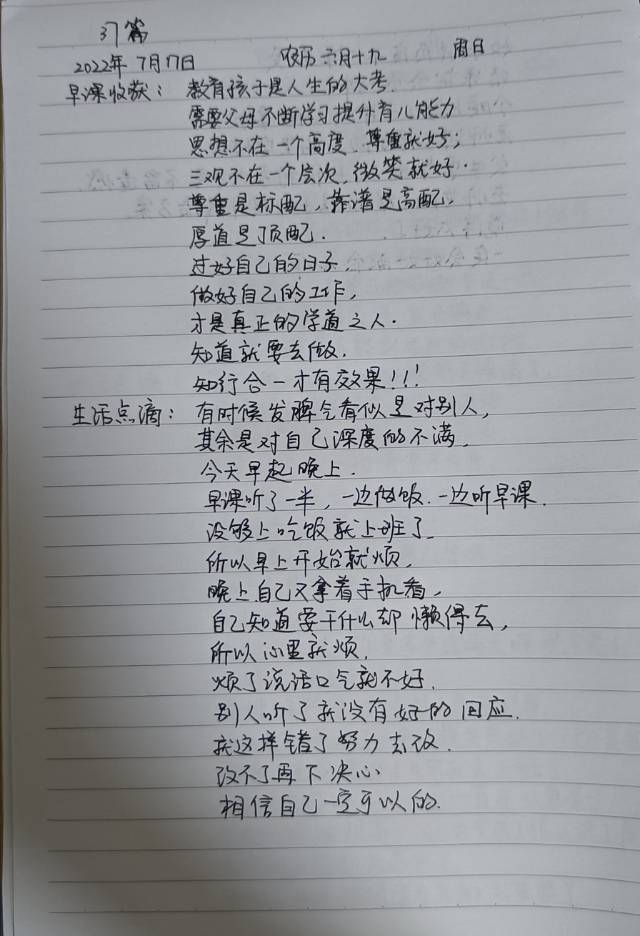 37篇
2022年7月17日 农历六月十九 周日
早课收获：教育孩子是人生的大考.
需要父母不断学习提升育儿能力
思想不在一个高度、尊重就好；
三观不在一个层次、微笑就好.
尊重是标配，靠谱是高配，
厚道是顶配.
过好自己的日子，
做好自己的工作，
才是真正的学道之人.
知道就要去做.
知行合一才有效果!!!
生活点滴：有时候发脾气看似是对别人，
其余是对自己深度的不满.
今天早起晚上.
早课听了一半，一边做饭.一边听早课.
没够上吃饭就上班了.
所以早上开始就烦.
晚上自己又拿着手机看，
自己知道要干什么却懒得去，
所以心里就烦.
烦了说话口气就不好.
别人听了就没有好的回应.
就这样错了努力去改.
改不了再下决心
相信自己一定可以的.